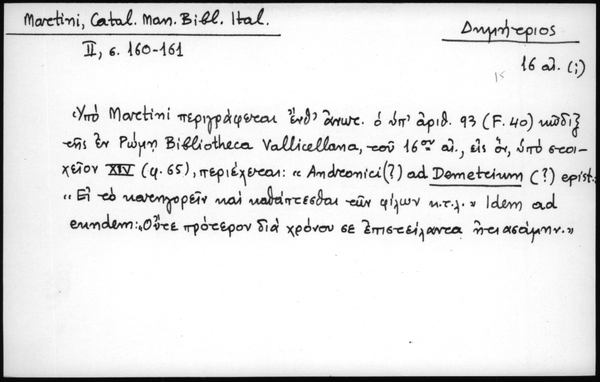 Martini, Catal. Man. Bibl. Ital.
II, σ. 160-161
Δημήτριος
16 αἰ. (;)
15
«Ὑπὸ Martini περιγράφεται ἔνθ' ἀνωτ. ὁ ὑπ' ἀριθ. 93 (F. 40) κῶδιξ
τῆς ἐν Ρώμῃ Bibliotheca Vallicellana, τοῦ 16ου αἰ., εἰς ὅν, ὑπὸ στοι-
χεῖον XIV (φ. 65), περιέχεται: «Andronici (?) ad Demetrium (?) epist.:
«Εἰ τὸ κατηγορεῖν καὶ καθάπτεσθαι τῶν φίλων κ.τ.λ.» Idem ad
eundem: «Οὔτε πρότερον διὰ χρόνου σε ἐπιστείλαντα ᾐτιασάμην.»